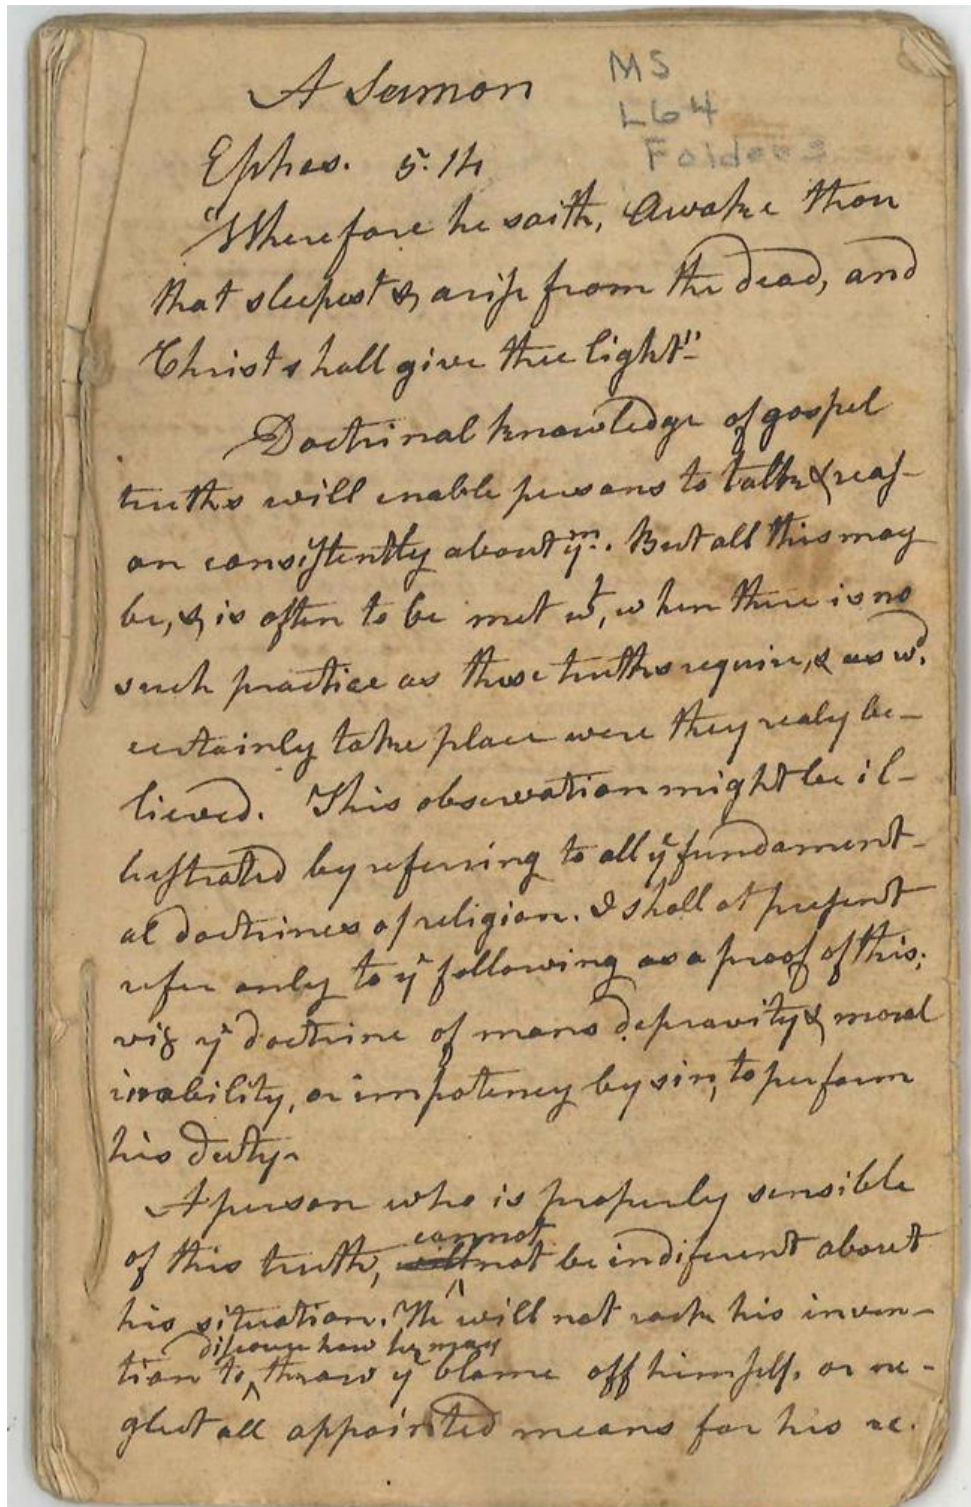 A Sermon
MS
L64
Folder 3
Ephes. 5.14
"Wherefore he saith, Awake thou
that sleepest & arise from the dead, and
Christ shall give thee light"
Doctrinal knowledge of gospel
truths will enable persons to talk & reas-
on consistently about ym. But all this may
be, & is often to be met wt, when there is no
such practice as those truths require, & as wd.
certainly take place were they realy be-
lieved. This observation might be il-
lustrated by referring to all ye fundament-
al doctrines of religion. I shall at present
refer only to ye following as a proof of this;
viz ye doctrine of mans depravity & moral
inability, or impotency by sin, to perform
his duty.
A person who is properly sensible
of this truth, cannot be indiferent about
his situation. He will not rack his inven-
tion to discover how he may throw ye blame off himself, or ne-
glect all appointed means for his re-